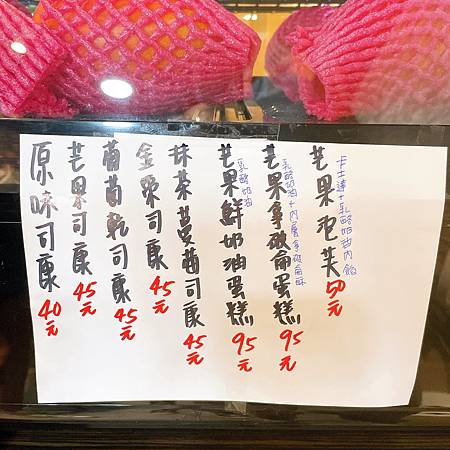 卡士達+乳酪奶油內餡
芒果泡芙50元
乳酪奶油+內層拿破侖酥
芒果拿破侖蛋糕95元
乳酪奶油
芒果鮮奶油蛋糕95元
抹茶蔓茴司康45元
金栗司康45元
葡萄乾司康45元
芒果司康45元
原味司康40元